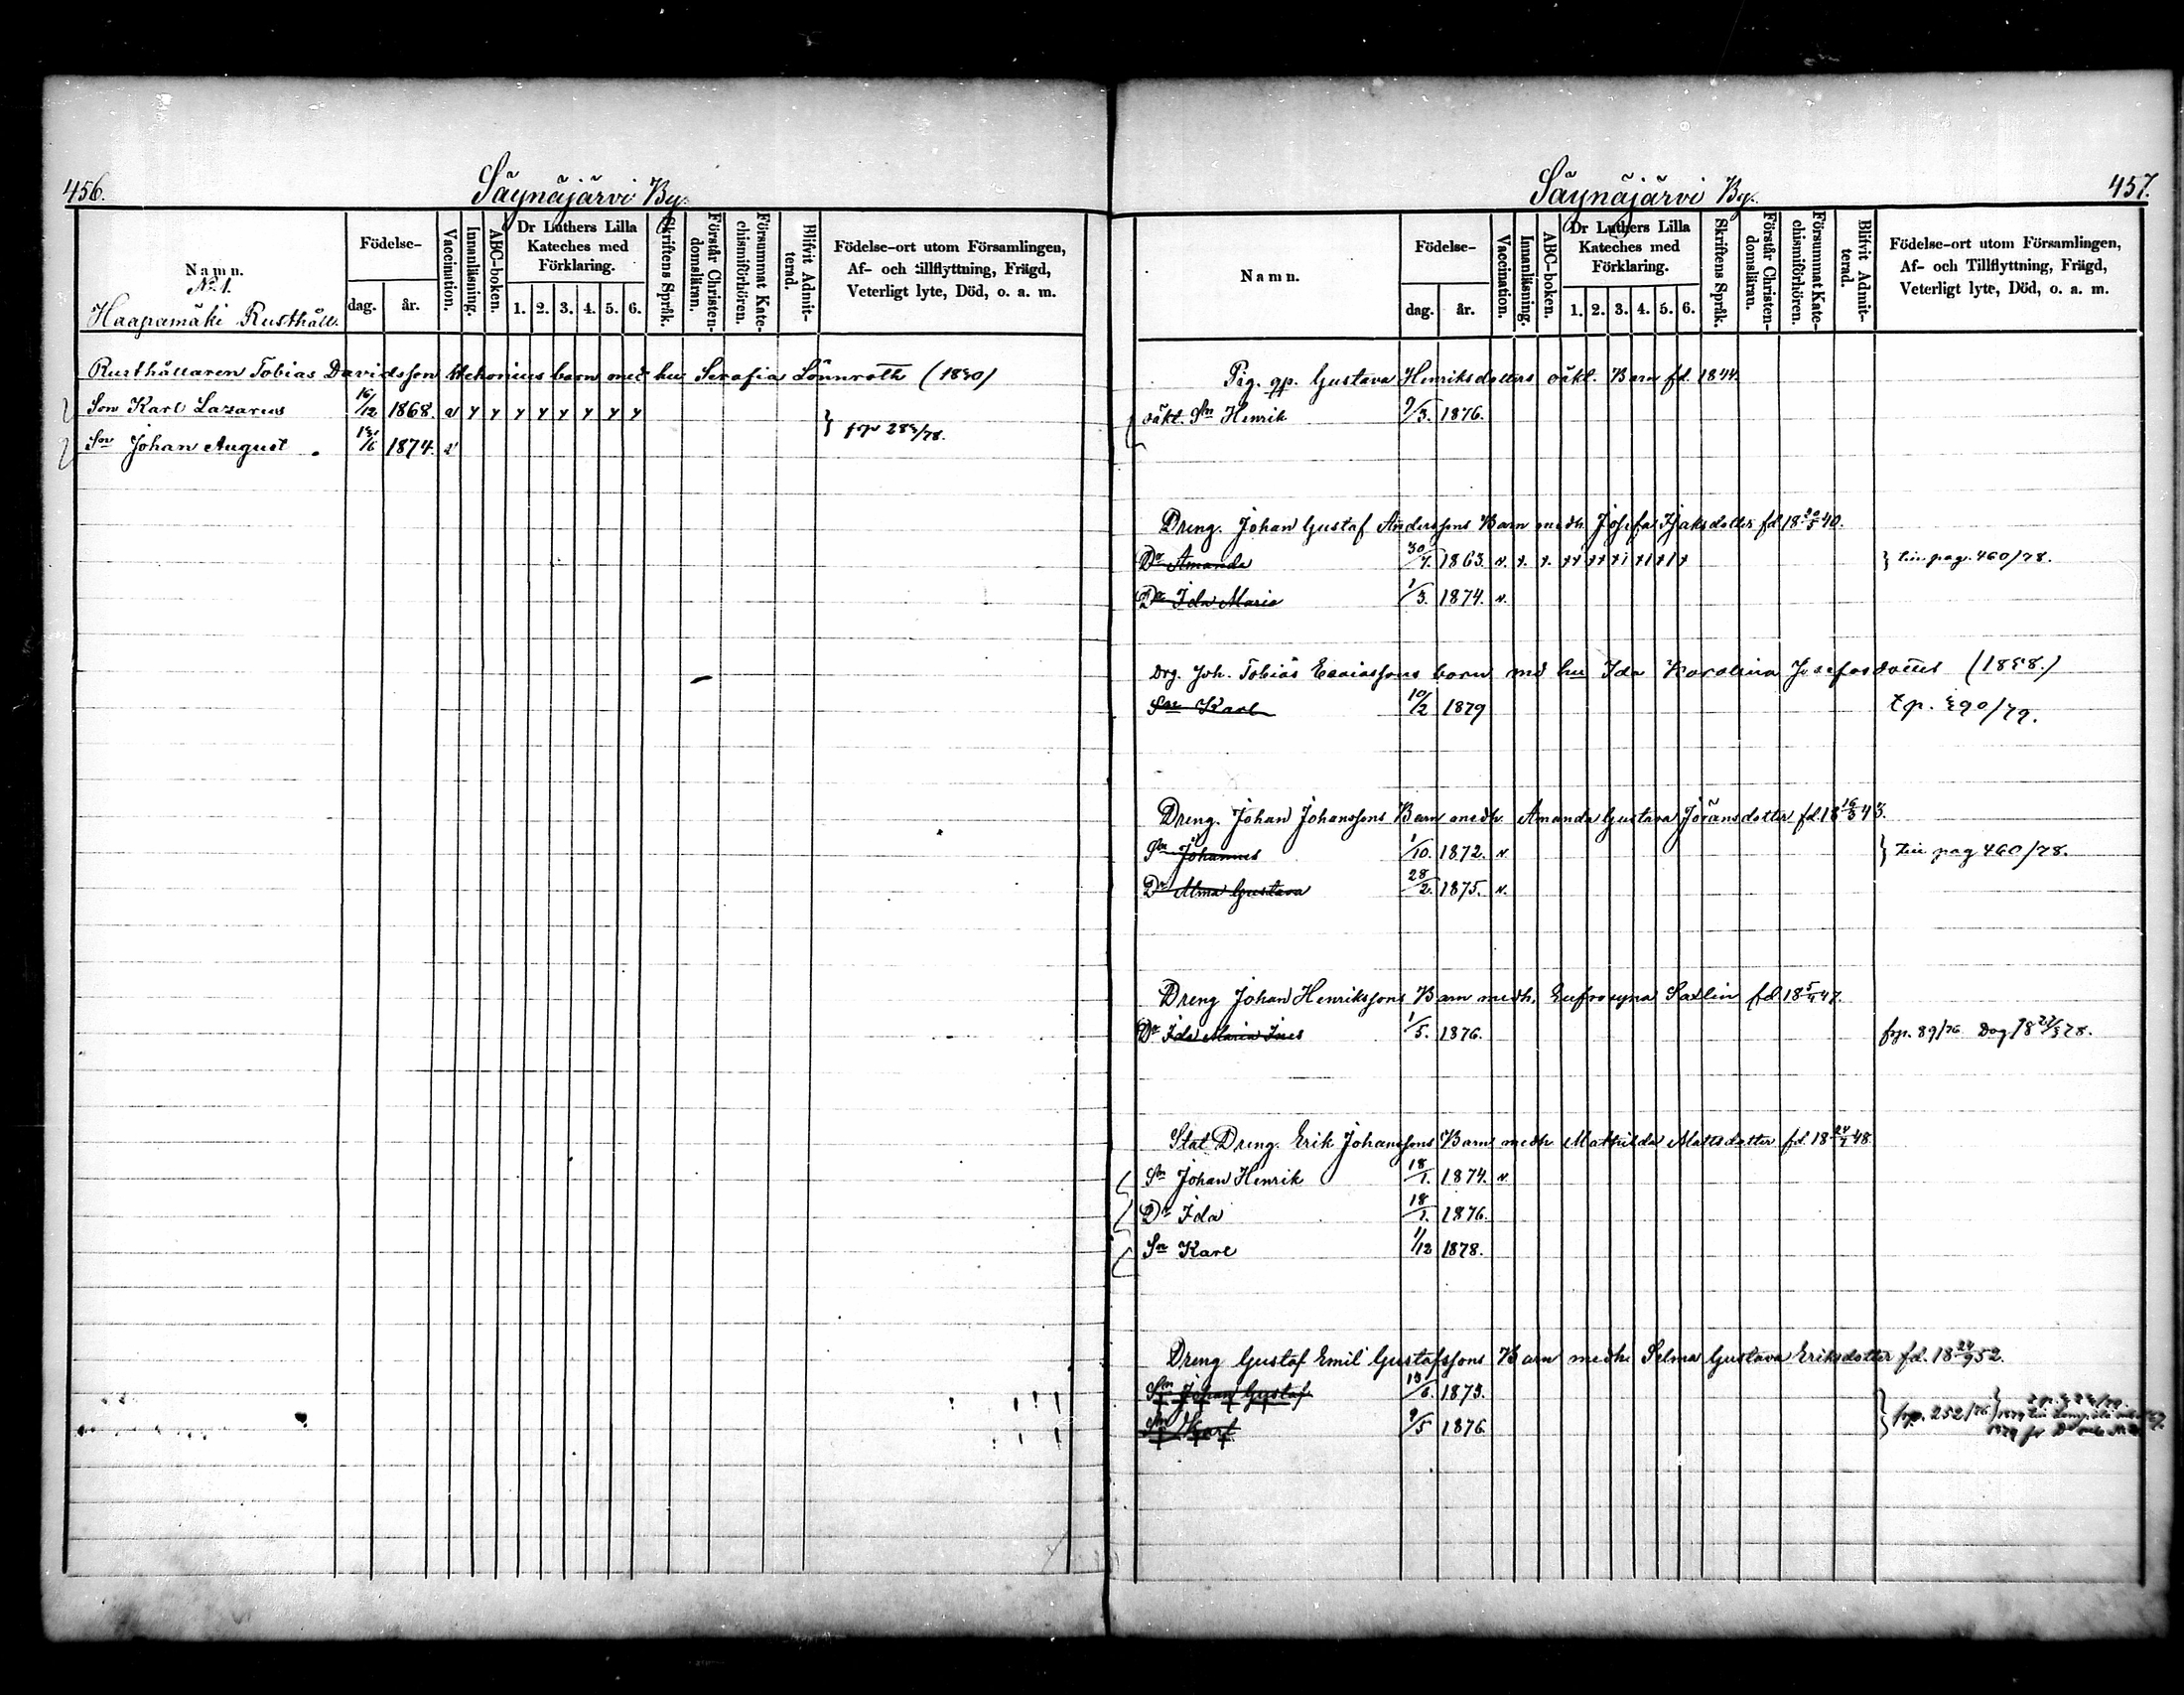 456.
Säynäjärvi By.
Namn.
No 1.
Haapamäki Rusthåll.
Födelse-
dag.
år.
Vaccination.
Innanläsning.
ABC-boken.
Dr Luthers Lilla
Kateches med
Förklaring.
1. 2. 3. 4. 5. 6.
Skriftens Språk.
Förstår Christen-
domsläran.
Försummat Kate-
chismiförhören.
Blifvit Admit-
terad.
Födelse-ort utom Församlingen,
Af- och tillflyttning, Frägd,
Veterligt lyte, Död, o. a. m.
Rusthållaren Tobias Davidsson barn med hu Serafia Lönnroth
Son Karl Lazarus 16/12 1868. v y y y y y y y y
Sn Johan August 1874. v
457.
Säynäjärvi By.
Namn.
Födelse-
dag.
år.
Vaccination.
Innanläsning.
ABC-boken.
Dr Luthers Lilla
Kateches med
Förklaring.
1. 2. 3. 4. 5. 6.
Skriftens Språk.
Förstår Christen-
domsläran.
Försummat Kate-
chismiförhören.
Blifvit Admit-
terad.
Födelse-ort utom Församlingen,
Af- och Tillflyttning, Frägd,
Veterligt lyte, Död, o. a. m.
Pig. qp. Gustava Henriksdotters oäkt. Barn fd. 1844.
oäkt. Sn Henrik 9/3. 1876.
Dreng. Johan Gustaf Anderssons Barn medh. Josefa Isaksdotter fd.
Dr Amanda 1863. v. till pag. 460/78.
Dr Ida Maria 1/3. 1874. v.
Drg. Joh. Tobias Esaiassons barn md hu Ida Karolina Josefasdotter
Sn Karl 10/2 1879
Dreng. Johan Johanssons Barn medh. Amanda Gustava Jöransdotter fd.
Sn Johannes 1/10. 1872. v. till pag 460/78.
Dr Alma Gustava 28/2. 1875. v.
Dreng Johan Henrikssons Barn medh. Eufrosyna Saxlin fd.
Dr Ida Maria Ines 1/5. 1876. frp. 89/76
Stat Dreng. Erik Johanssons Barn medh Mathilda Mattsdotter fd.
Sn Johan Henrik 18/1. 1874. v.
Dr Ida 18/1. 1876.
Sn Karl 1/12 1878.
Dreng Gustaf Emil Gustafssons Barn medh. Selma Gustava Eriksdotter fd.
Sn Johan Gustaf 1873.
Sn Karl 9/5 1876. frp. 252/76